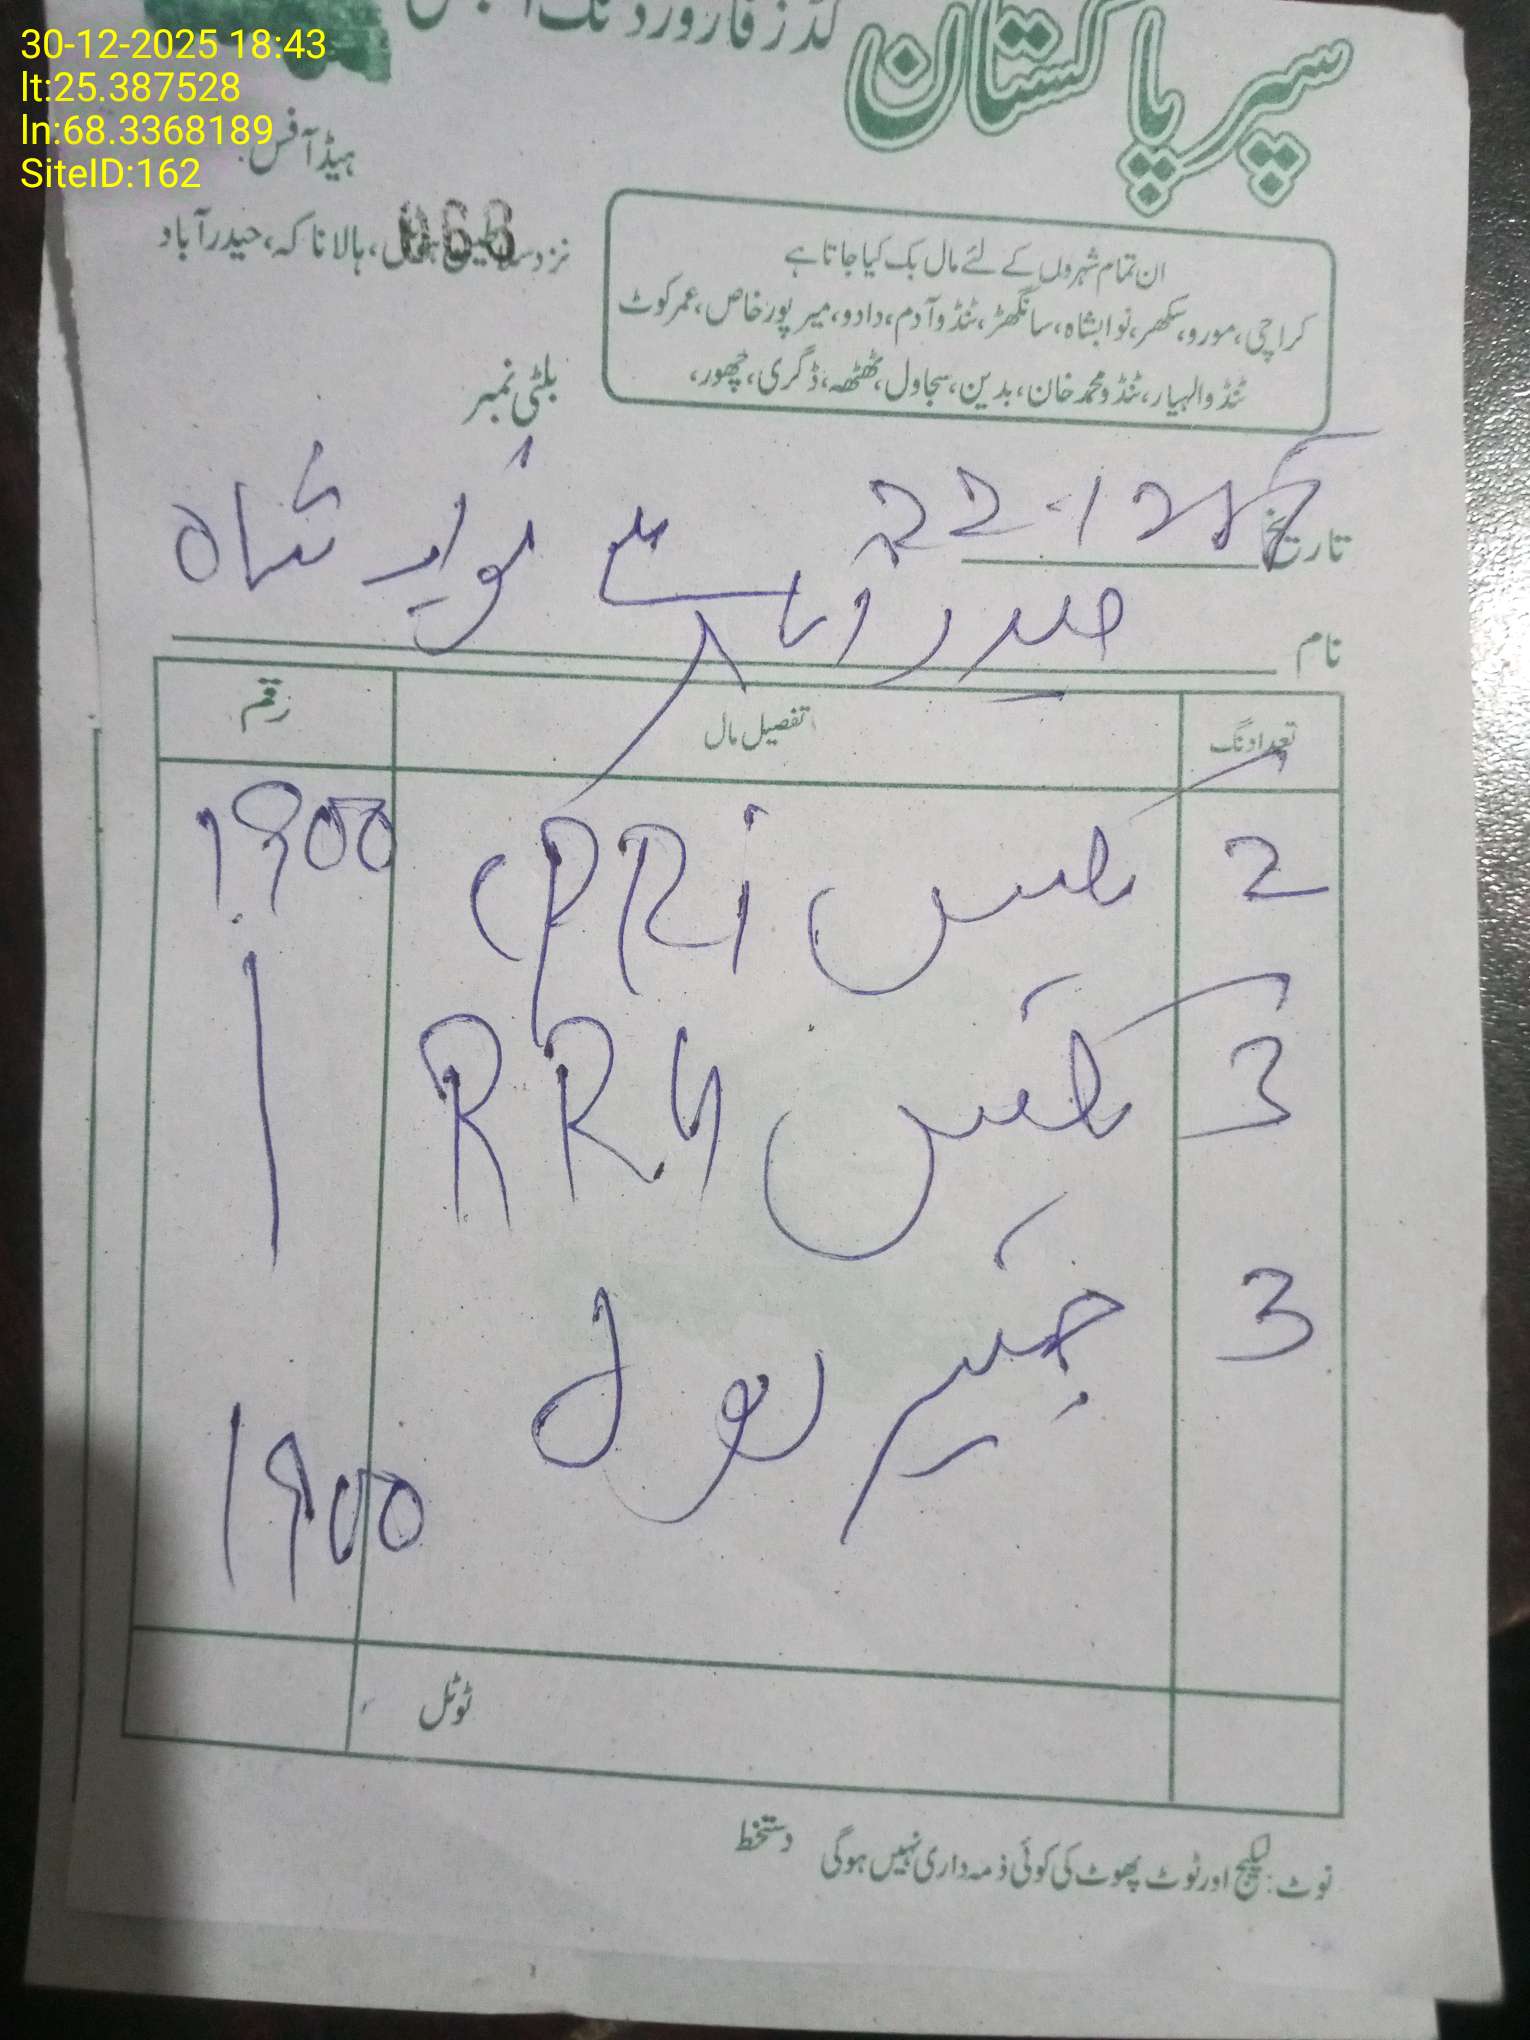 30-12-2025 18:43
lt:25.387528
ln:68.3368189
SiteID:162
سپر پاکستان
گڈز فارورڈنگ
ہیڈ آفس:
ہالا ناکہ، حیدرآباد
068
ان تمام شہروں کے لئے مال بک کیا جاتا ہے
کراچی، مورو، سکھر، نوابشاہ، سانگھڑ، ٹنڈوآدم، دادو، میرپورخاص، عمرکوٹ
ٹنڈوالہیار، ٹنڈومحمدخان، بدین، سجاول، ٹھٹھہ، ڈگری، چھور،
بلٹی نمبر
تاریخ 22-12
نام حیدرآباد سے نواب شاہ
تعداد نگ تفصیل مال رقم
2 CPRI 1900
3 RRU
3
1900
ٹوٹل
نوٹ: لیکیج اور ٹوٹ پھوٹ کی کوئی ذمہ داری نہیں ہوگی دستخط